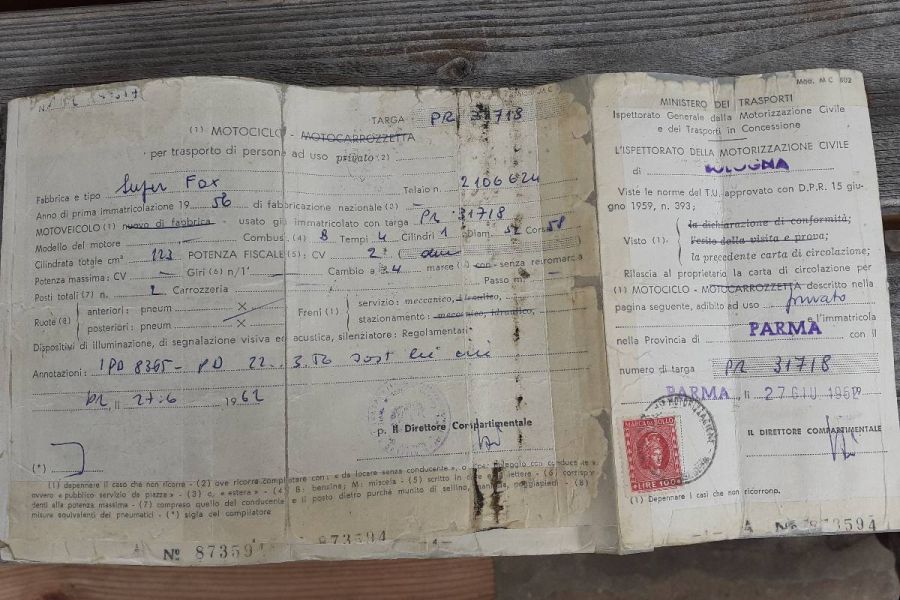 TARGA PR 31718
(1) MOTOCICLO - MOTOCARROZZETTA
per trasporto di persone ad uso privato (2)
Fabbrica e tipo Super Fox Telaio n. 2106624
Anno di prima immatricolazione 19 56 di fabbricazione nazionale (2)
MOTOVEICOLO (1) nuovo di fabbrica - usato già immatricolato con targa PR 31718
Modello del motore Combus. (4) B Tempi 4 Cilindri 1 Diam. 52 Corsa 58
Cilindrata totale cm³ 123 POTENZA FISCALE (5): CV 2 (due
Potenza massima: CV Giri (6) n/1' Cambio a 34 marce con - senza retromarcia
Posti totali (7) n. 2 Carrozzeria Passo m.
Ruote (8) anteriori: pneum X
posteriori: pneum X
Freni (1) servizio: meccanico, idraulico,
stazionamento: meccanico, idraulico,
Dispositivi di illuminazione, di segnalazione visiva ed acustica, silenziatore: Regolamentari
Annotazioni: PD 8365 - PD 22. 3.56
lì 27.6 1962
p. Il Direttore Compartimentale
(*)
(1) depennare il caso che non ricorre - (2) ove ricorra completare con: « da locare senza conducente », o
ovvero « pubblico servizio da piazza » - (3) o, « estera » - (4) B: benzina; M: miscela - (5) scritto in cifre e in lettere - (6) corrisp
denti alla potenza massima - (7) compreso quello del conducente e il posto dietro purché munito di sellino,
misure equivalenti dei pneumatici - (*) sigla del compilatore
Nº 873594
873594
Mod. M C 802
MINISTERO DEI TRASPORTI
Ispettorato Generale della Motorizzazione Civile
e dei Trasporti in Concessione
L'ISPETTORATO DELLA MOTORIZZAZIONE CIVILE
di BOLOGNA
Viste le norme del T.U. approvato con D.P.R. 15 giu-
gno 1959, n. 393;
Visto (1). la dichiarazione di conformità;
l'esito della visita e prova;
la precedente carta di circolazione;
Rilascia al proprietario la carta di circolazione per
(1) MOTOCICLO - MOTOCARROZZETTA descritto nella
pagina seguente, adibito ad uso privato
e l'immatricola
nella Provincia di PARMA con il
numero di targa PR 31718
PARMA, lì 27 GIU 1962
IL DIRETTORE COMPARTIMENTALE
MARCA DA BOLLO
LIRE 100
(1) Depennare i casi che non ricorrono.
A Nº 873594